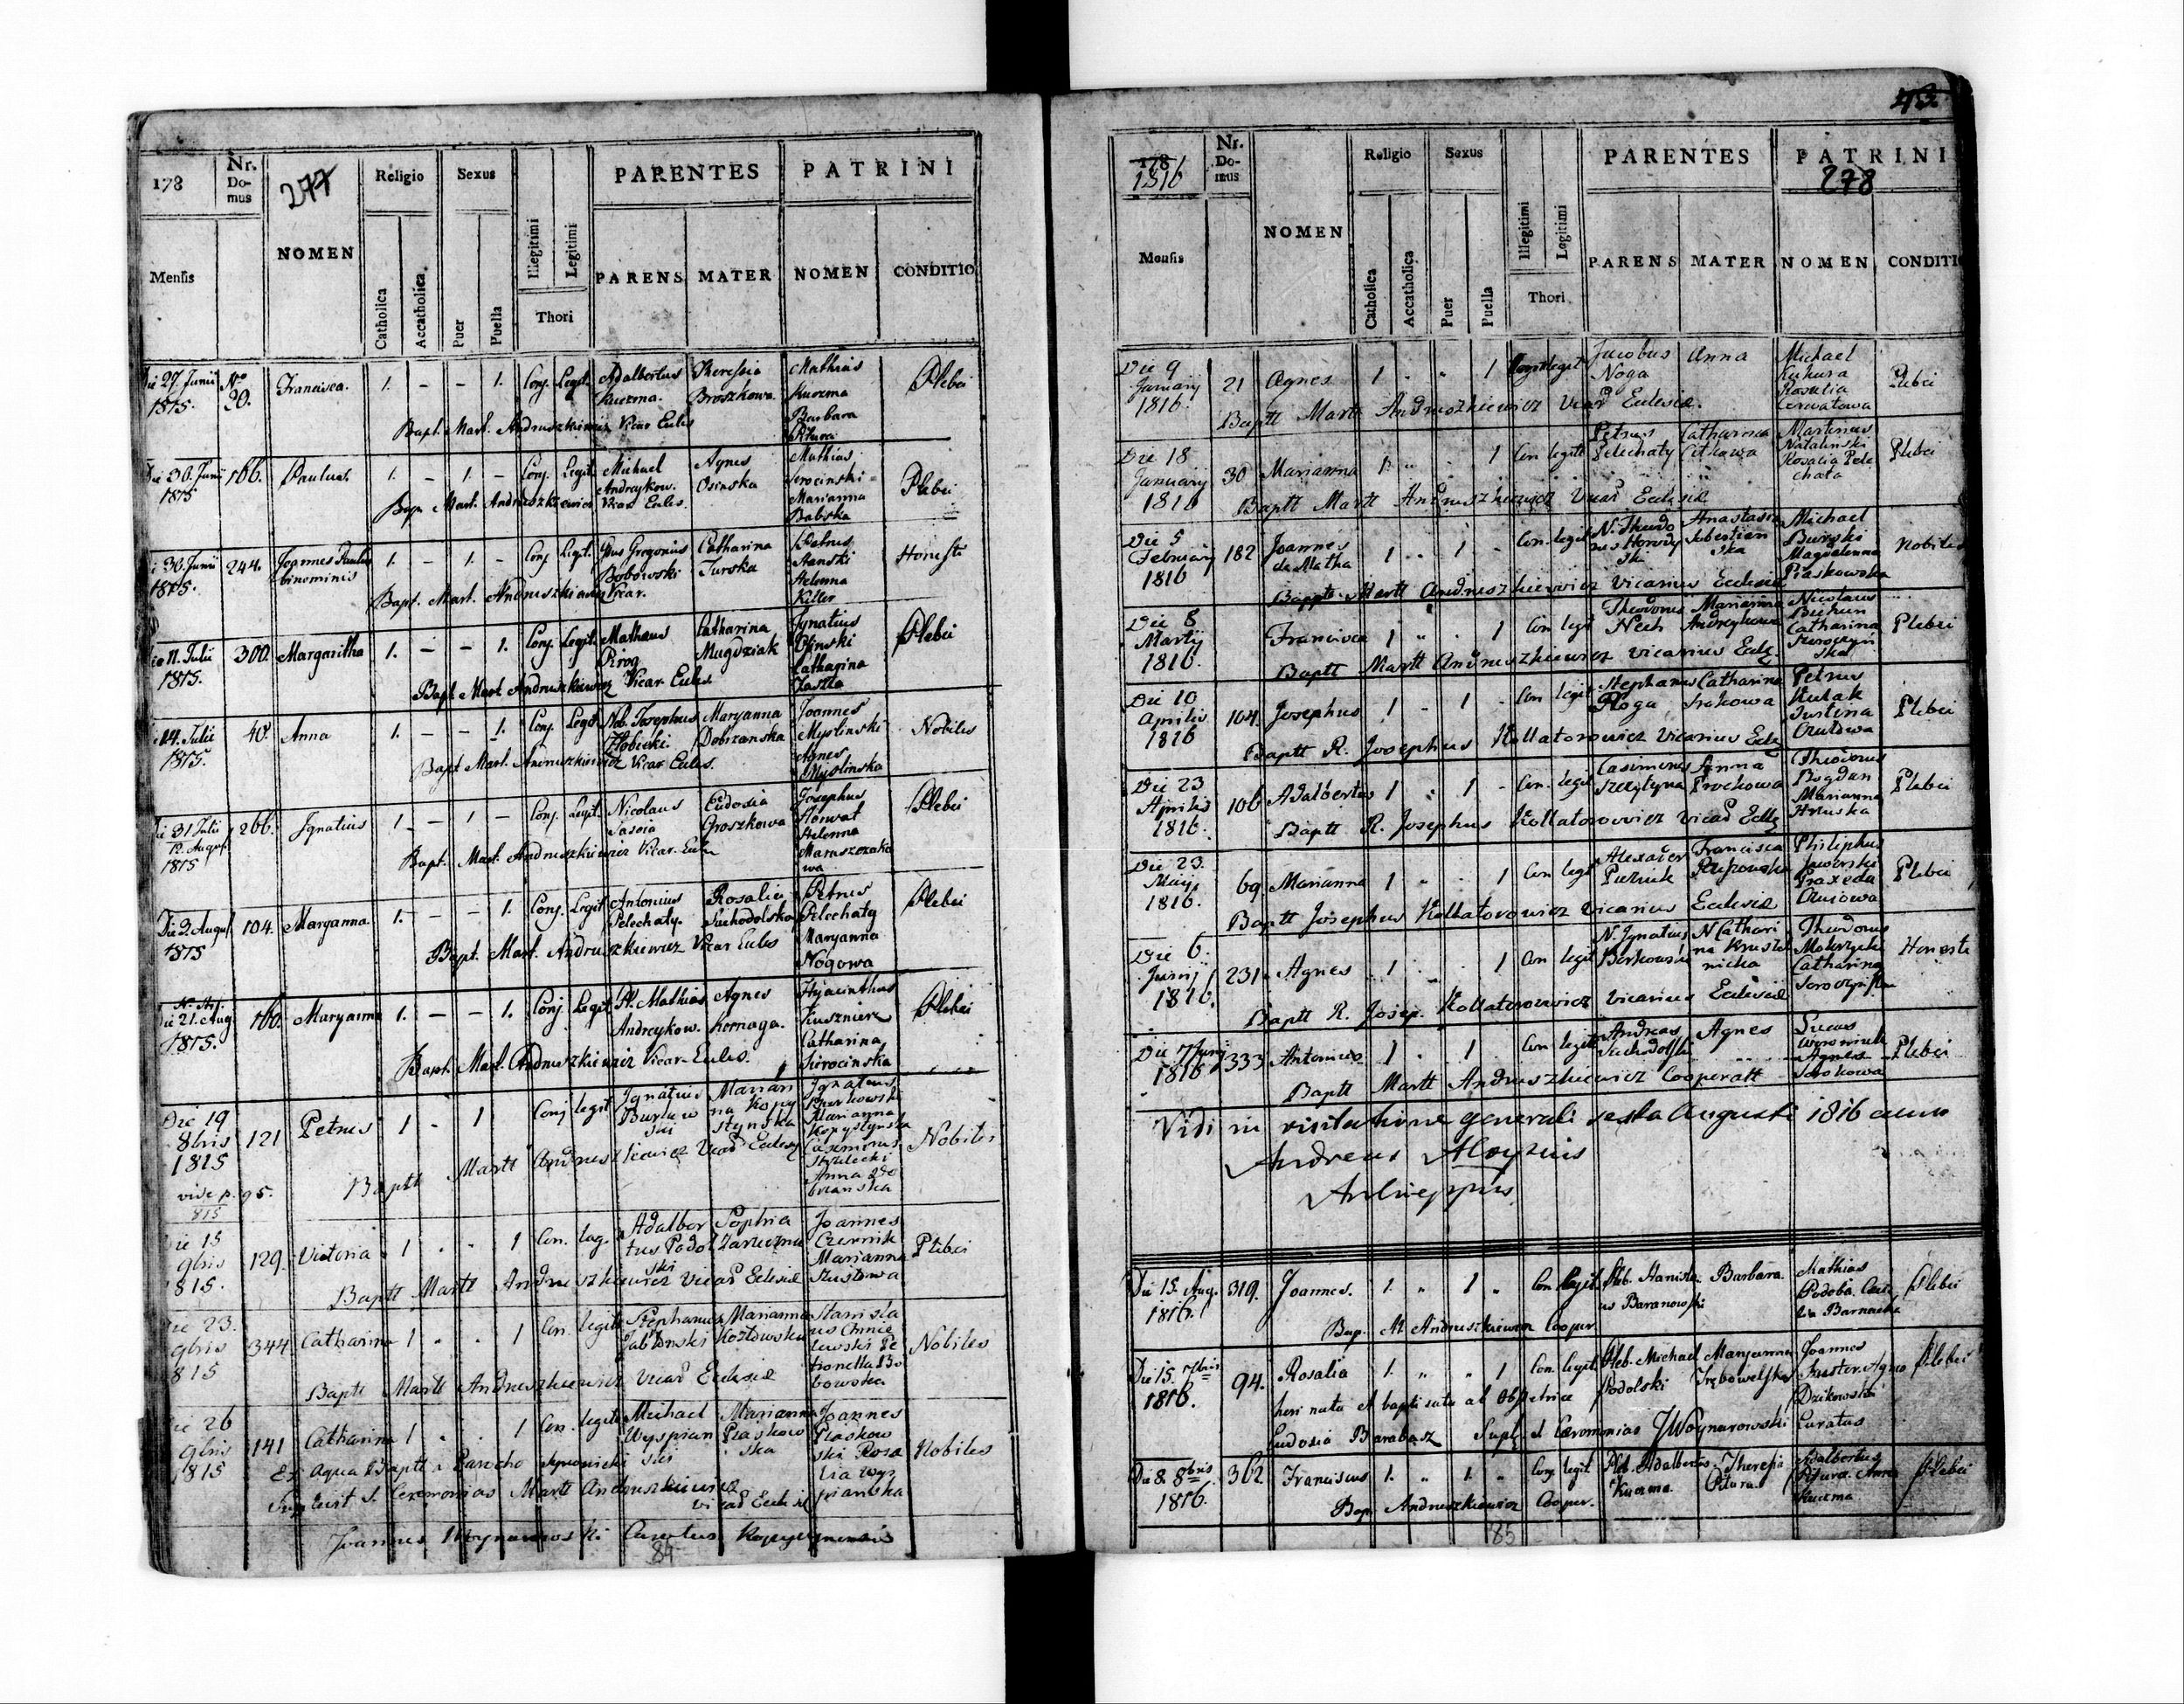 178
Nr. Domus
277
NOMEN
Religio
Sexus
PARENTES
PATRINI
Mensis
Catholica
Accatholica.
Puer
Puella
Illegitimi
Legitimi
Thori
PARENS
MATER
NOMEN
CONDITIO
Die 27. Junii 1815.
Nro 20.
Francisca.
1. – – 1.
Conj. Legit.
Adalbertus Kuczma.
Theressia Broszkowa
Mathias Kuczma Barbara Pitura
Plebei
Bapt. Mart. Andruszkiewicz Vicar Eccles
Die 30. Junii 1815
166.
Paulus.
1. – 1. –
Conj. Legit.
Michael Andreykow.
Agnes Osinska
Mathias Sirocinski Marianna Babska
Plebei
Bapt. Mart. Andruszkiewicz Vicar Eccles.
30. Junii 1815.
244.
Joannes Paulus binominis
1. – 1. –
Conj. Legit.
Gregorius Bobowski
Catharina Turska
Petrus Stanski Helenna Killer
Honesti
Bapt. Mart. Andruszkiewicz Vicar.
11. Julii 1815.
300.
Margaritha
1. – – 1.
Conj. Legit.
Matheus Pirog
Catharina Mugdziak
Ignatius Osinski Catharina Zaszla
Plebei
Bapt. Mart. Andruszkiewicz Vicar. Eccles.
14. Julii 1815.
40.
Anna
1. – – 1.
Conj. Legit.
Nob. Josephus Hlobicki.
Maryanna Dobrzanska
Joannes Myslinski Agnes Myslinska
Nobiles
Bapt. Mart. Andruszkiewicz Vicar Eccles.
31 Julii
12. August. 1815
266.
Ignatius
1. – 1 –
Conj. Legit.
Nicolaus Sasoia
Eudosia Groszkowa
Josephus Horwat Helenna Maruszczakowa
Plebei
Bapt. Mart. Andruszkiewicz Vicar. Eccles
Die 3. August. 1815
104.
Maryanna
1. – – 1.
Conj. Legit
Antonius Pelechaty.
Rosalia Suchodolska
Petrus Pelechaty Maryanna Nogowa
Plebei
Bapt. Mart. Andruszkiewicz Vicar Eccles
21. Aug. 1815.
166.
Maryanna
1. – – 1.
Conj. Legit
Mathias Andreykow.
Agnes Kornaga.
Hyacinthus Kusznierz Catharina Sirocinska
Plebei
Bapt. Mart. Andruszkiewicz Vicar. Eccles.
Die 19 8bris 1815
vide p. 95. 815
121
Petrus
1 - 1
Conj legit
Ignatius Burkowski
Marianna Kopystynska
Ignatius Burkowski Marianna Kopystynska Casimirus Strzelecki Anna
Nobiles
Baptt Martt Andruszkiewicz Vicar Eccles
15 9bris 815.
129.
Victoria
1 . . 1
Con. leg.
Adalbertus Podolski
Sophia
Joannes Czernik Marianna Szustowa
Plebei
Baptt Martt Andruszkiewicz Vicar Eclesiæ
23. 9bris 815
344
Catharina
1 . . 1
Con. legit
Stephanus Jablonski
Marianna Kozlowska
Stanislaus Chmielewski Petronella Bobowska
Nobiles
Baptt Martt Andruszkiewicz Vicar Eclesiæ
26 9bris 1815
141
Catharina
1 . . 1
Con. legit
Michael Wyspianski
Marianna Piaskowska
Joannes Piaskowski Rosalia Wyspianska
Nobiles
Ex Aqua Baptt a Parocho
Suplevit S. Ceremonias Martt Andruszkiewicz Vicar Eclesiæ
Joannes Woynarowski Curatus
84
1816
Nr. Domus
NOMEN
Religio
Sexus
PARENTES
PATRINI
278
Mensis
Catholica
Accatholica
Puer
Puella
Illegitimi
Legitimi
Thori
PARENS
MATER
NOMEN
CONDITI
Die 9 January 1816.
21
Agnes
1 . . 1
legit
Jacobus Noga
Anna
Michael Kukura Rosalia Cerwatowa
Plebei
Baptt Martt Andruszkiewicz Vicar Eclesiæ.
Die 18 January 1816
30
Marianna
1 . . 1
Con legit
Petrus Pelechaty
Catharina Citkowa
Martinus Natalinski Rosalia Pelechata
Plebei
Baptt Martt Andruszkiewicz Vicar Eclesiæ
Die 5 February 1816
182
Joannes de Matha
1 . 1 .
Con. legit
N. Theodorus Horodyski
Anastasia Sebestianska
Michael Burski Magdalenna Piaskowska
Nobiles
Baptt. Martt Andruszkiewicz Vicarius Eclesiæ
Die 8 Martij 1816.
Francisca
1 . . 1
Con legit
Theodorus Nech
Marianna Andreykowa
Nicolaus Bichun Catharina
Plebei
Baptt Martt Andruszkiewicz Vicarius Ecclę
Die 10 Aprilis 1816
104.
Josephus
1 . 1 .
Con. legit
Stephanus Noga
Catharina
Petrus Kulak Justina
Plebei
Baptt R. Josephus Kollatorowicz Vicarius Ecclę
Die 23 Aprilis 1816.
106
Adalbertus
1 . 1 .
Con. legit
Casimirus
Anna Prockowa
Theodorus Bogdan Marianna Hruska
Plebei
Baptt R. Josephus Kollatorowicz Vicar Ecclę
Die 23. May 1816.
69
Marianna
1 . . 1
Con legit
Francisca
Philiphus Jaworski Praxeda
Plebei
Baptt Josephus Kollatorowicz Vicarius Eclesiæ
Die 6. Junij 1816.
231.
Agnes
1 . . 1
Con legit
N. Ignatius Borkowski
N Catharina
Theodorus Catharina
Honesti
Baptt R. Josep. Kollatorowicz Vicarius Eclesiæ
Die 7 Junij 1816
333
Antonius
1 . 1
Con legit
Andreas Suchodolski
Agnes
Lucas Agnes Sorokowa
Plebei
Baptt Martt Andruszkiewicz Cooperatt
Vidi in visitatione generali sexta Augusti 1816 anno
Andreas Aloysius
Archieppus
Die 15. Aug. 1816.
319.
Joannes.
1. " 1 "
Con legit.
Pleb. Stanislaus Baranowski
Barbara.
Mathias Podoba
Plebei
Bap. M Andruszkiewicz Cooper.
Die 15. 7bris 1816.
94.
Rosalia
1. " " 1
Con. legit
Pleb. Michael Podolski
Maryanna Trębowelska
Joannes Agnes Dzikowska
Plebei
heri nata et baptisata ab Obstetrice
Eudosia Barabasz Suplę S Cæremonias JWoynarowski Curatus
Die 8. 8bris 1816.
362
Franciscus
1. " 1. "
Conj. legit.
Pleb. Adalbertus Kuczma.
Theresia Pitura.
Adalbertus Pitura. Anna Kuczma
Plebei
Bap Andruszkiewicz Cooper.
85